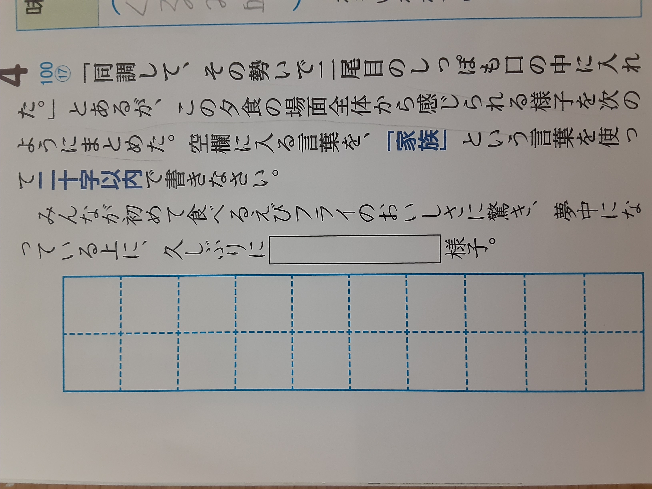 味
4
100
⑰
「同調して、その勢いで二尾目のしっぽも口の中に入れ
た。」とあるが、この夕食の場面全体から感じられる様子を次の
ようにまとめた。空欄に入る言葉を、「家族」という言葉を使っ
て二十字以内で書きなさい。
みんなが初めて食べるえびフライのおいしさに驚き、夢中にな
っている上に、久しぶりに
様子。